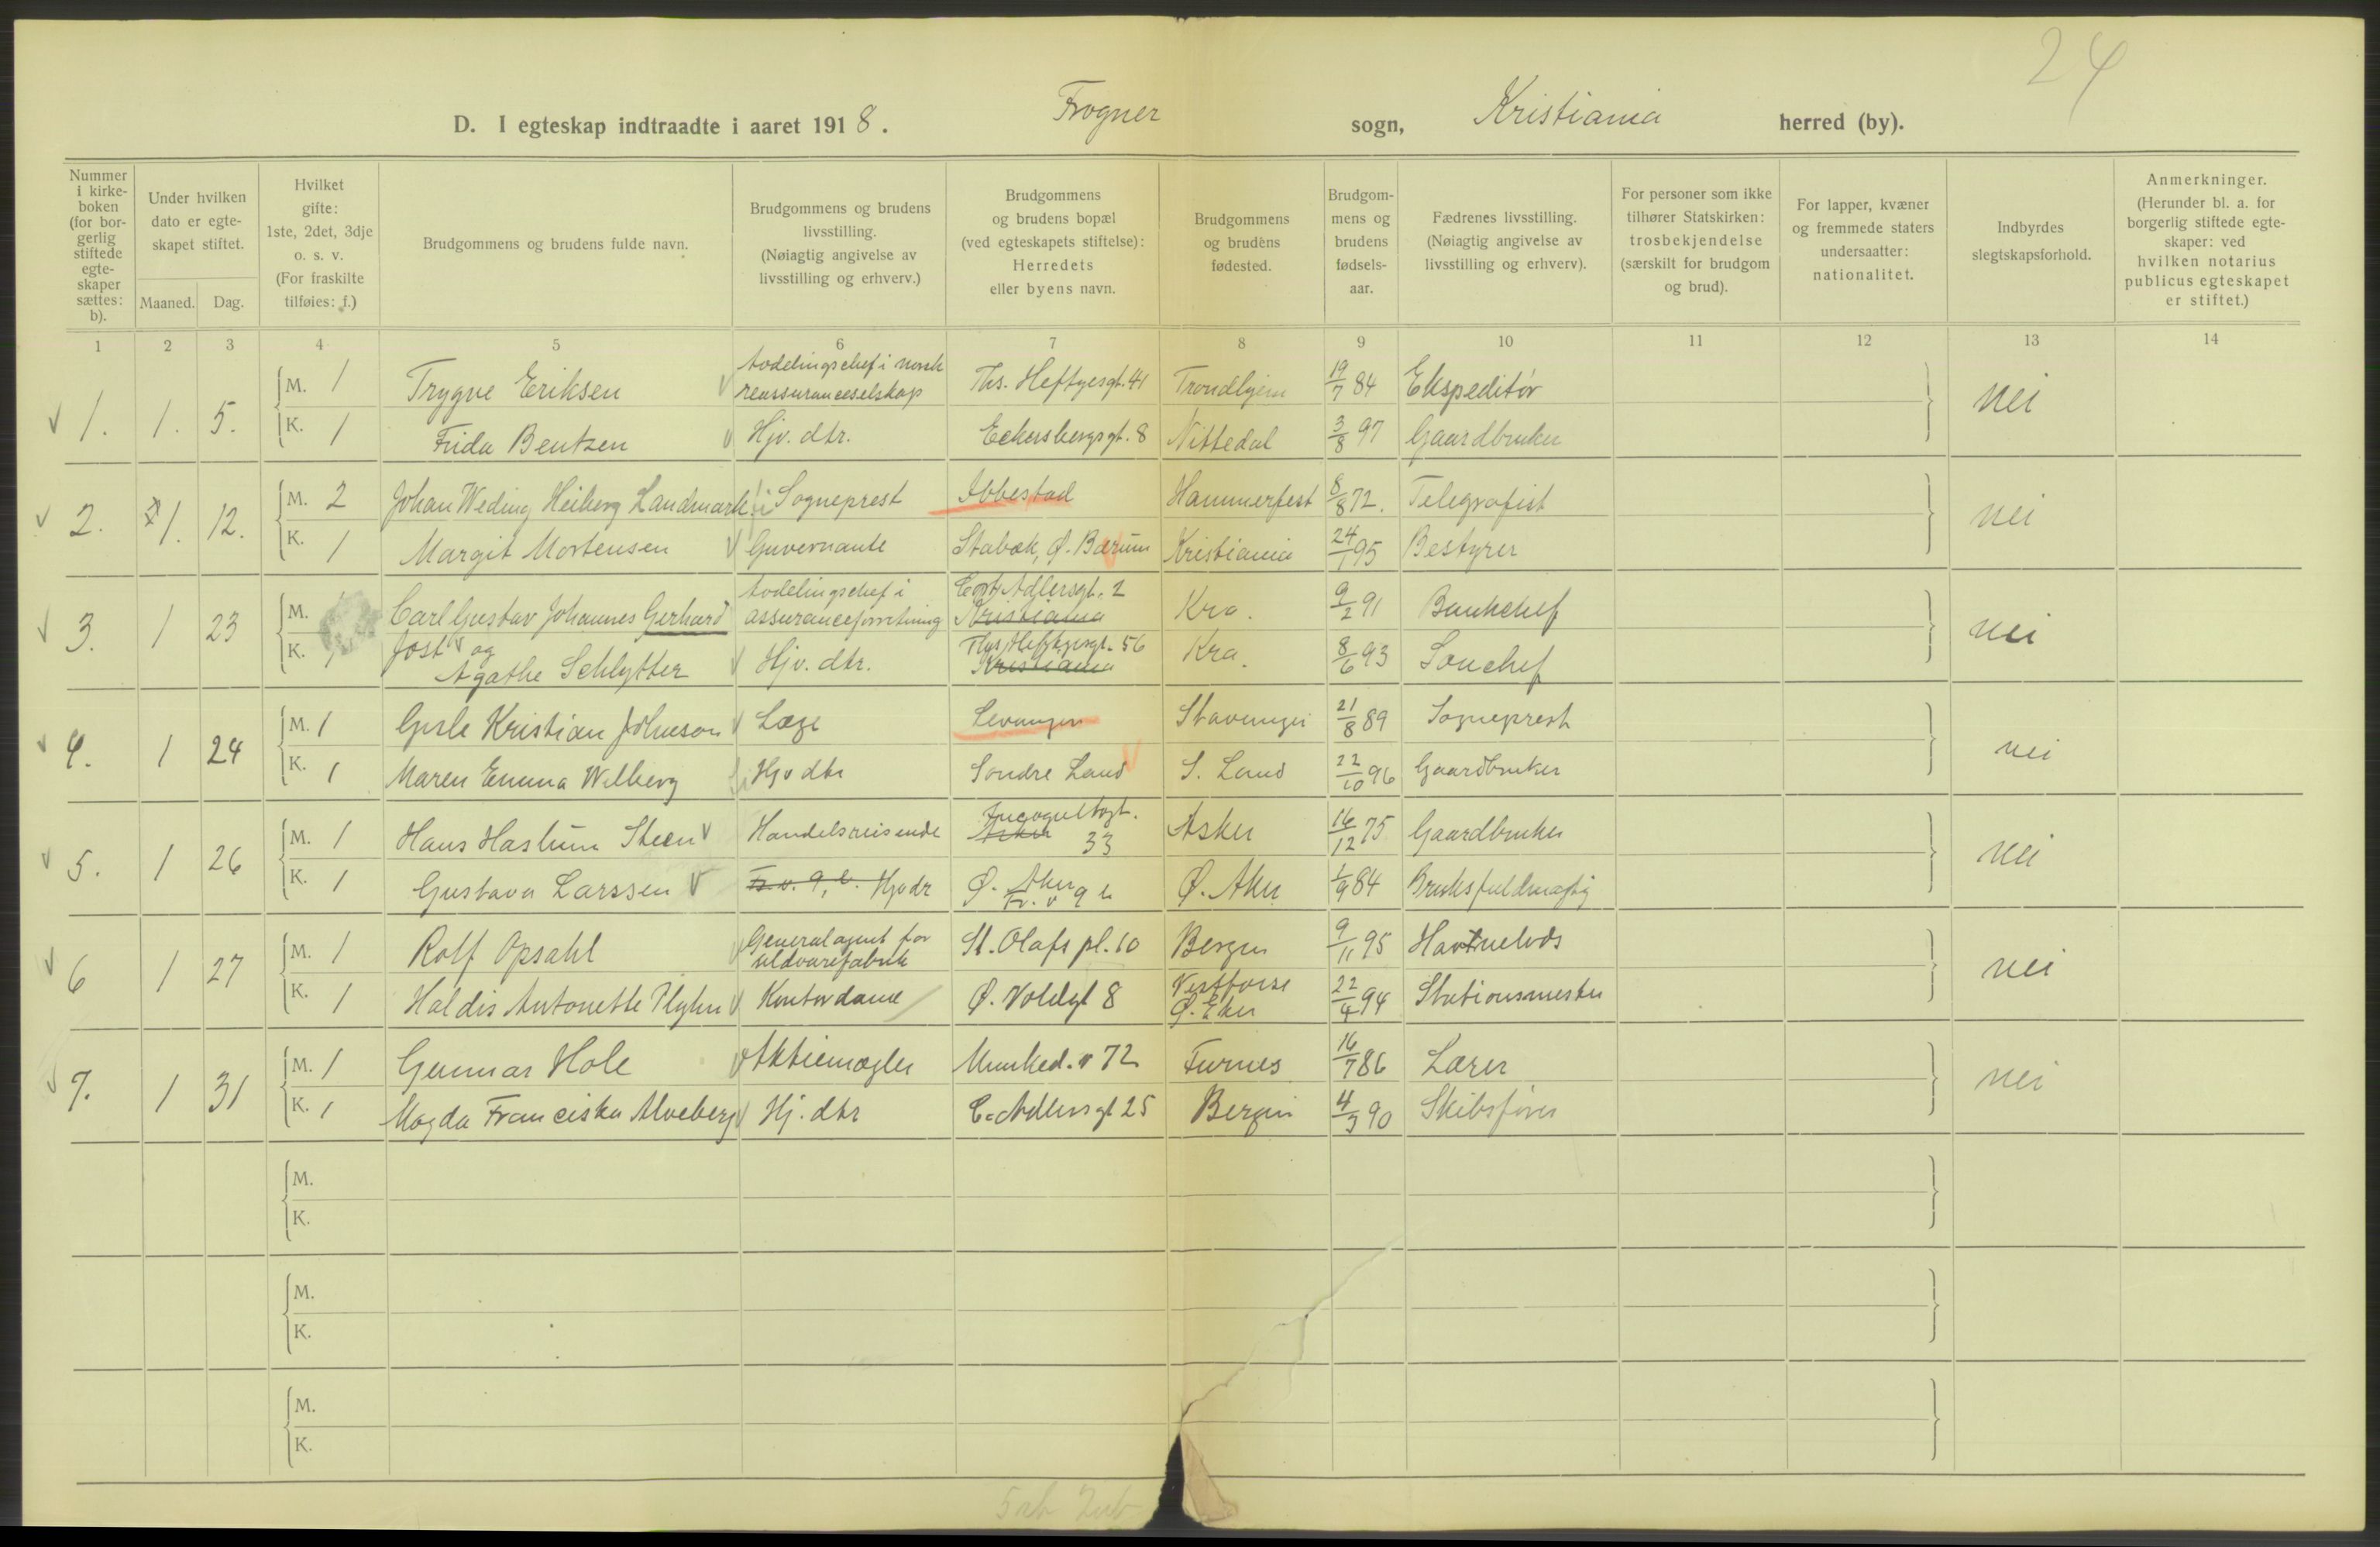 24
D. I egteskap indtraadte i aaret 1918. Frogner sogn, Kristiania herred (by).
Nummer i kirke-boken (for bor-gerlig stiftede egte-skaper sættes: b).
Under hvilken dato er egte-skapet stiftet.
Maaned. Dag.
Hvilket gifte: 1ste, 2det, 3dje o. s. v. (For fraskilte tilføies: f.)
Brudgommens og brudens fulde navn.
Brudgommens og brudens livsstilling. (Nøiagtig angivelse av livsstilling og erhverv.)
Brudgommens og brudens bopæl (ved egteskapets stiftelse): Herredets eller byens navn.
Brudgommens og brudens fødested.
Brudgom-mens og brudens fødsels-aar.
Fædrenes livsstilling. (Nøiagtig angivelse av livsstilling og erhverv).
For personer som ikke tilhører Statskirken: trosbekjendelse (særskilt for brudgom og brud).
For lapper, kvæner og fremmede staters undersaatter: nationalitet.
Indbyrdes slegtskapsforhold.
Anmerkninger. (Herunder bl. a. for borgerlig stiftede egte-skaper: ved hvilken notarius publicus egteskapet er stiftet.)
1 2 3 4 5 6 7 8 9 10 11 12 13 14
1. 1. 5. M. 1 Trygve Eriksen Avdelingschef i norsk reassuranceselskap Ths. Heftyesgt. 41 Trondhjem 19/7 84 Ekspeditør nei
K. 1 Frida Bentzen Hjv. dtr. Eckersbergsgt. 8 Nittedal 3/8 97 Gaardbruker
2. 1. 12. M. 2 Johan Weding Heiberg Landmark Sogneprest Ibbestad Hammerfest 8/8 72. Telegrafist nei
K. 1 Margit Mortensen Guvernante Stabæk, Ø. Bærum Kristiania 24/1 95 Bestyrer
3. 1 23 M. Carl Gustav Johannes Gerhard Jost og Avdelingschef i assuranceforretning Cort Adlersgt. 2 Kristiania Kra. 9/2 91 Bankchef nei
K. Agathe Schlytter Hjv. dtr. Ths. Heftyesgt. 56 Kristiania Kra. 8/6 93 Souchef
4. 1 24 M. 1 Gisle Kristian Johnson Læge Levanger Stavanger 21/8 89 Sogneprest nei
K. 1 Maren Emma Wilberg Hjv dtr Søndre Land S. Land 22/10 96 Gaardbruker
5. 1 26 M. 1 Hans Haslum Steen Handelsreisende Incognitogt. Asker 33 Asker 16/12 75 Gaardbruker nei
K. 1 Gustava Larssen Fr. v. 9, b. Hjv dr Ø. Aker Fr. v 9 b Ø. Aker 1/9 84 Bruksfuldmægtig
6 1 27 M. 1 Rolf Opsahl Generalagent for uldvarefabrik St. Olafs pl. 10 Bergen 9/11 95 Havnelods nei
K. 1 Haldis Antonette Plyhn Kontordame Ø. Voldgt 8 Vestfosse Ø. Eker 22/4 94 Stationsmester
7. 1 31 M. 1 Gunnar Hole Aktiemægler Munked. v 72 Furnes 16/7 86 Lærer nei
K. 1 Magda Franciska Alveberg Hj. dtr C. Adlersgt 25 Bergen 4/3 90 Skibsfører
M.
K.
M.
K.
M.
K.